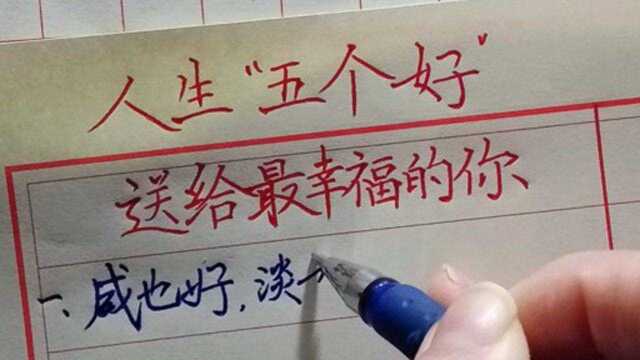 人生“五个好”
送给最幸福的你
一、咸也好,淡